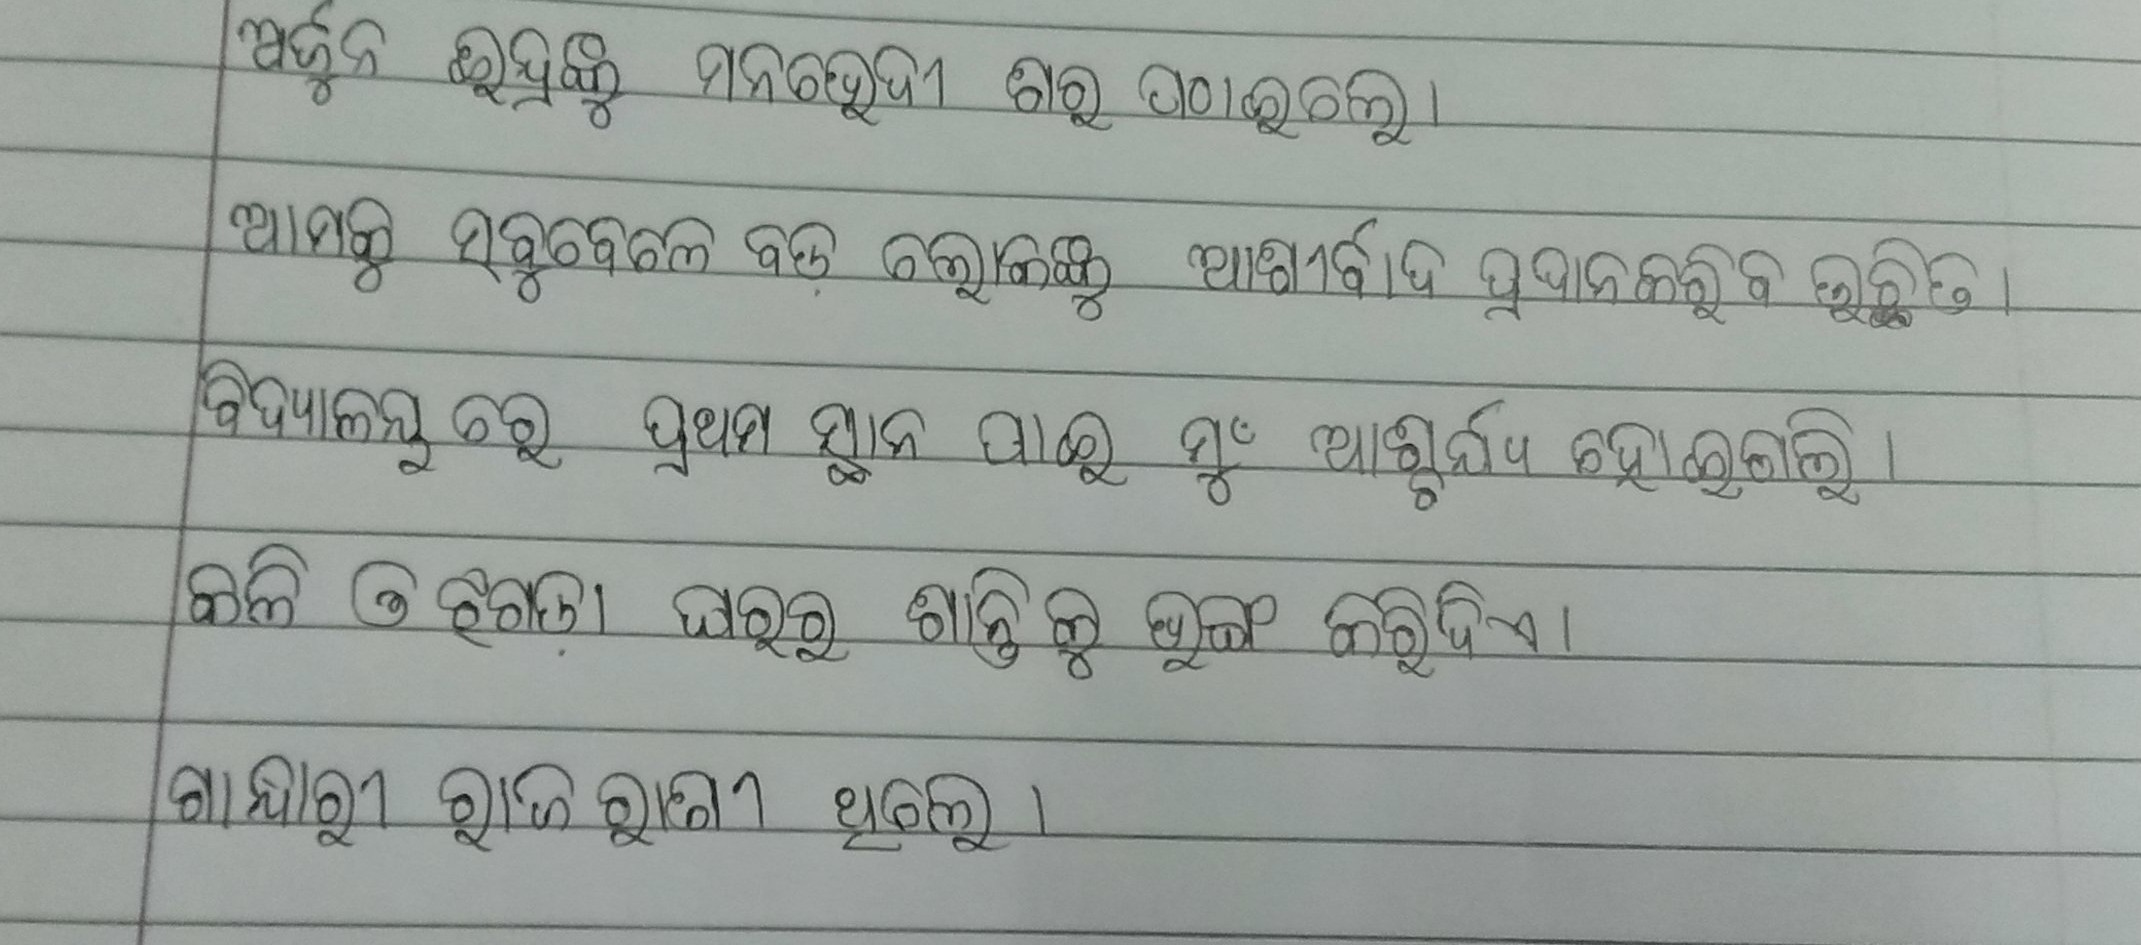 ଅର୍ଜୁନ ଇନ୍ଦ୍ରଙ୍କୁ ମନଭେଦୀ ଶର ପଠାଇଲେ।
ଆମକୁ ସବୁବେଳେ ବଡ଼ ଲୋକଙ୍କୁ ଆଶୀର୍ବାଦ ପ୍ରଦାନକରିବ ଉଚିତ।
ବିଦ୍ୟାଳୟ ରେ ପ୍ରଥମ ସ୍ଥାନ ପାଇ ମୁଂ ଆଶ୍ଚର୍ଯ୍ୟ ହୋଇଗଲି।
କଳି ଓ ଝଗଡ଼ା ଘରର ଶାନ୍ତି କୁ ଭଙ୍ଗ କରିଦିଏ।
ଗାନ୍ଧାରୀ ରାଜ ରାଣୀ ଥିଲେ।